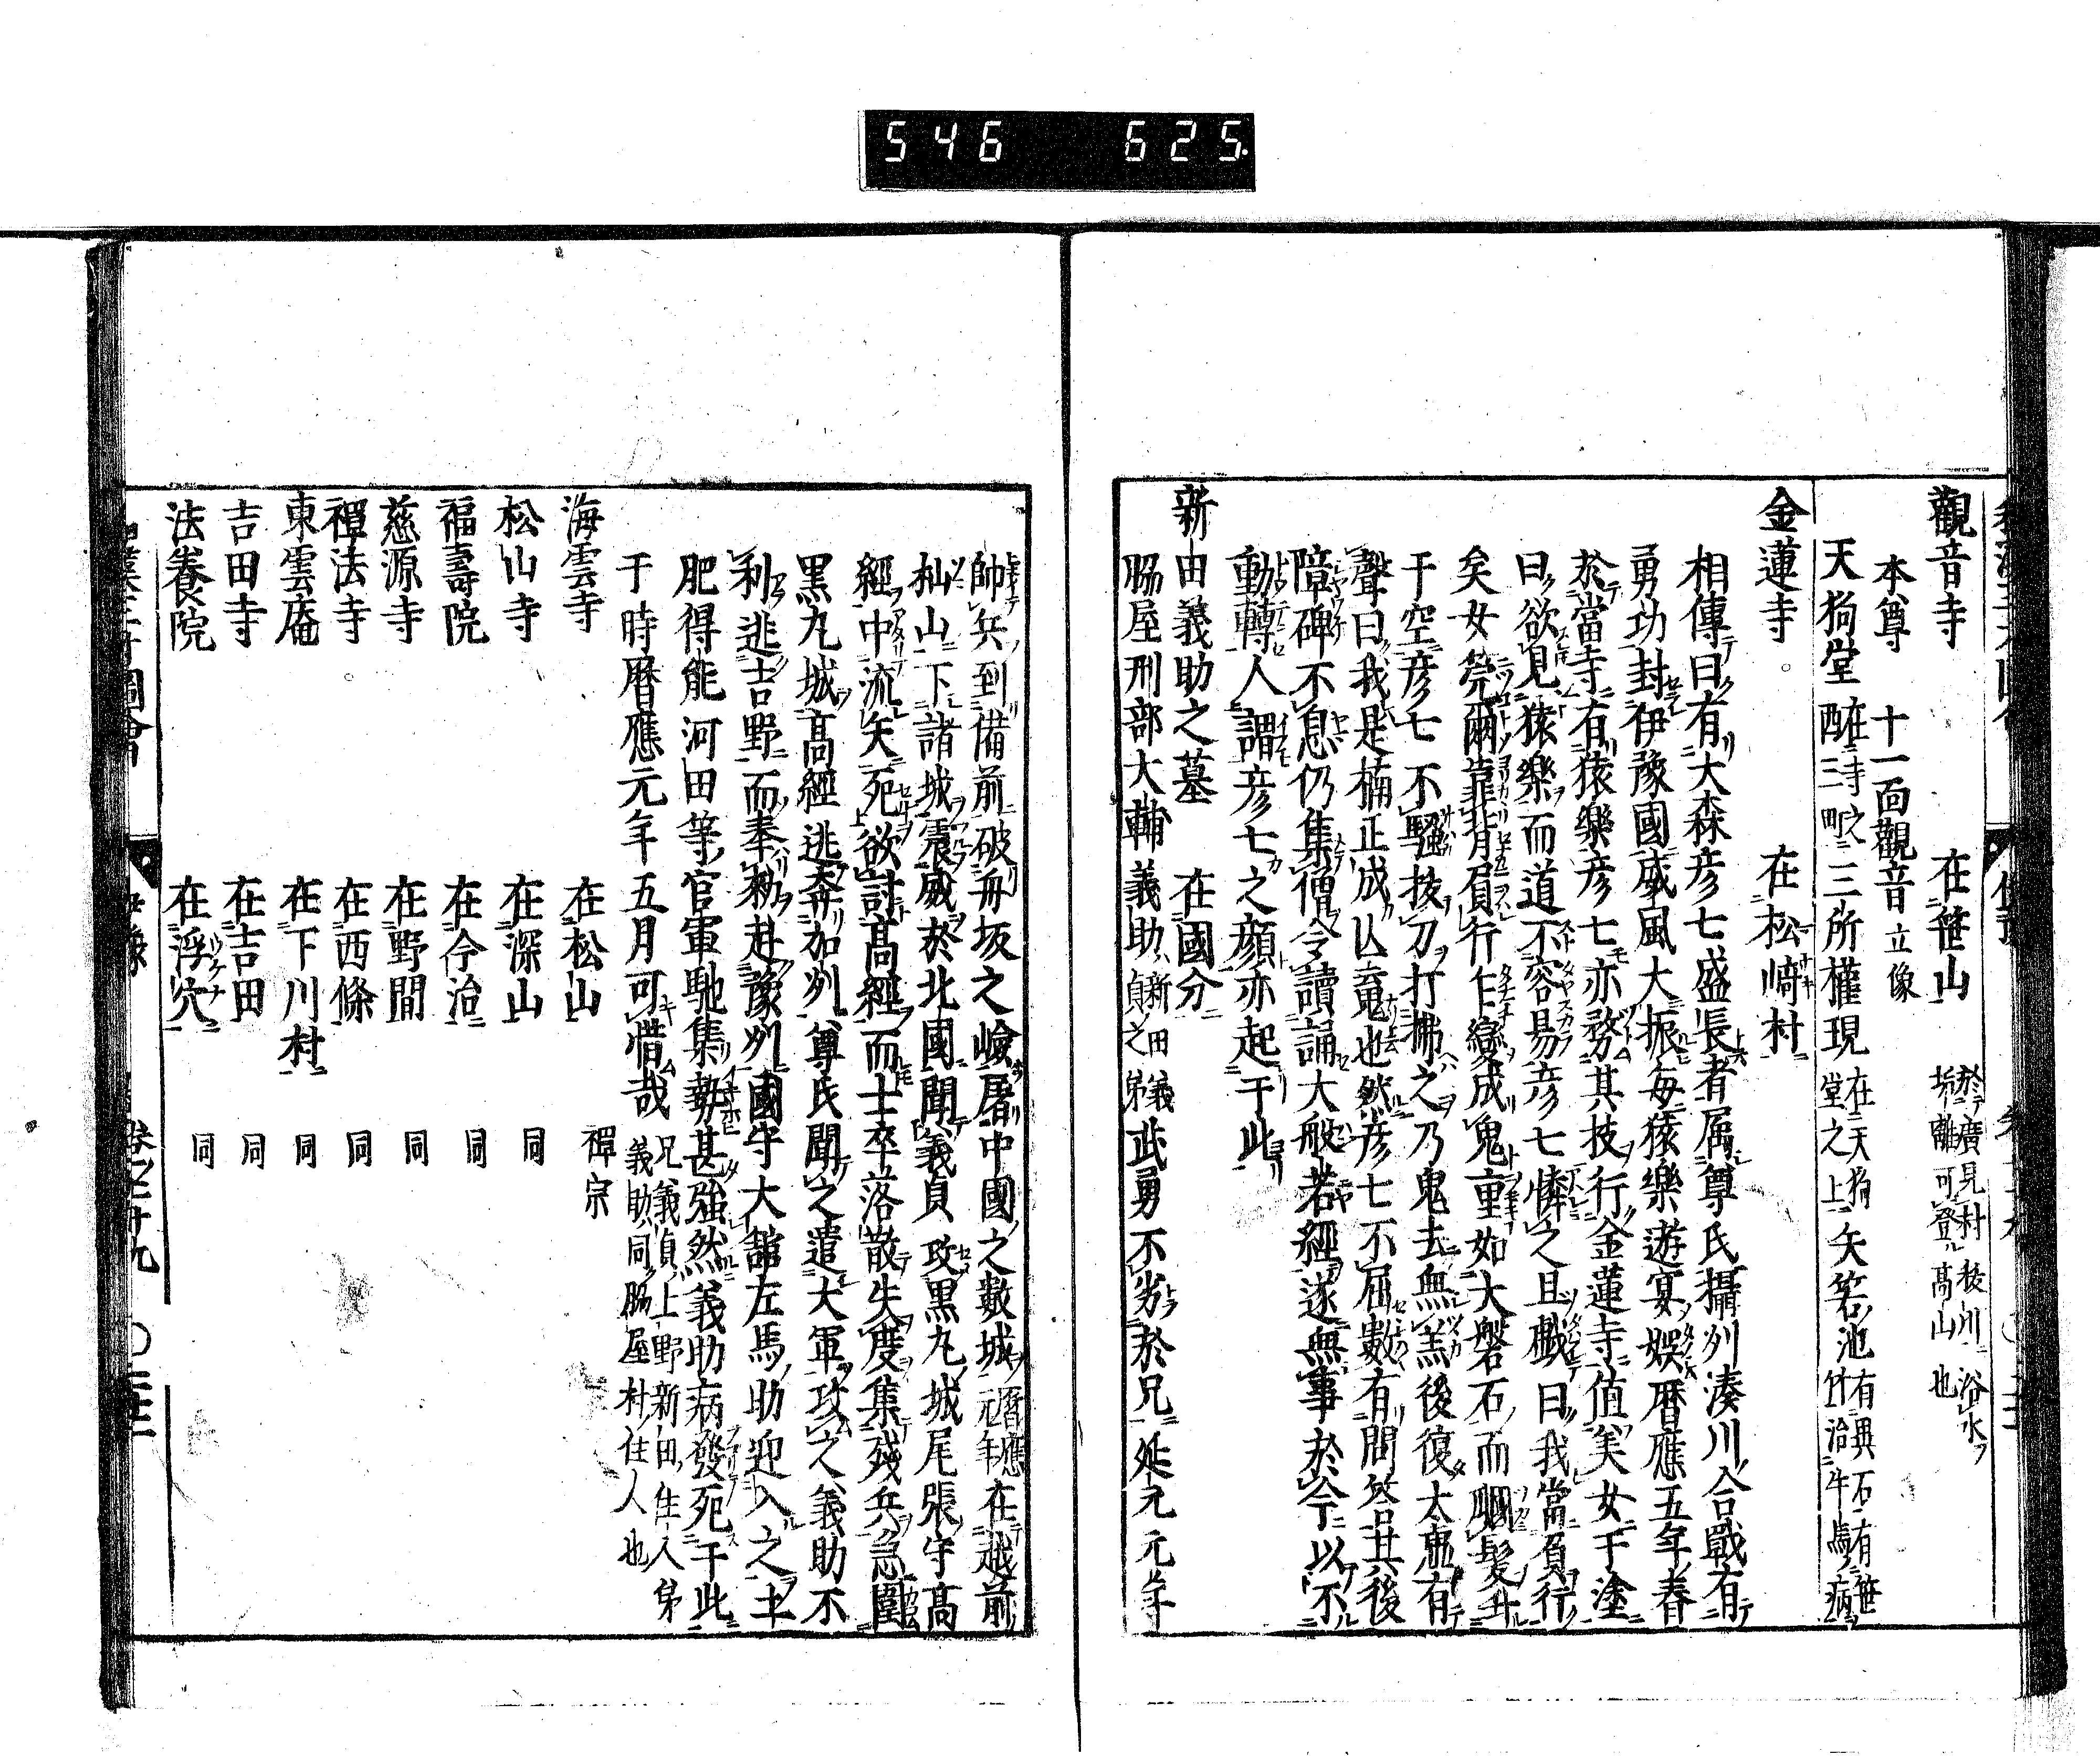 546 625.
觀音寺 在笹山 於廣見村稜川浴水
垢離可登高山也
本尊 十一面觀音 立像
天狗堂 在寺之
酉三町 三所權現 在天狗
堂之上 矢筈池 有異石有笹
竹治牛馬病
金蓮寺 在松﨑村
相傳曰有大森彦七盛長者属尊氏攝刕湊川合戰有
勇功封伊豫國威風大振毎猿樂遊宴娯暦應五年春
於當寺有猿樂彦七亦務其技行金蓮寺値美女于塗
曰欲見猿樂而道不容易彦七憐之且戲曰我當負行
矣女莞爾靠背肩行乍變成鬼重如大磐石而䐃髪升
于空彦七不騒抜刀打拂之乃鬼去無恙後復太虚有
聲曰我是楠正成亾竜也然彦七不屈數有問答其後
障碑不息仍集僧令讀誦大般若經遂無事於今以不
動轉人謂彦七之顔亦起于此
新田義助之墓 在國分
脇屋刑部大輔義助 新田義
貞之弟 武勇不劣於兄延元元年
帥兵到備前破舟坂之嶮屠中國之數城 暦應
元年 在越前
杣山下諸城震威於北國聞義貞攻黒丸城尾張守高
經中流矢死欲討髙經而士卒落散失度集残兵急圍
黒丸城髙經逃奔加刕尊氏聞之遣大軍攻之義助不
利逃吉野而奉勅赴豫刕國守大舘左馬助迎入之土
肥得能河田等官軍馳集勢甚強然義助病發死于此
于時暦應元年五月可惜哉 兄義貞上野新田住人弟
義助同脇屋村住人也
海雲寺 在松山 禪宗
松山寺 在深山 同
福壽院 在今治 同
慈源寺 在野間 同
禪法寺 在西條 同
東雲庵 在下川村 同
吉田寺 在吉田 同
法養院 在浮穴 同